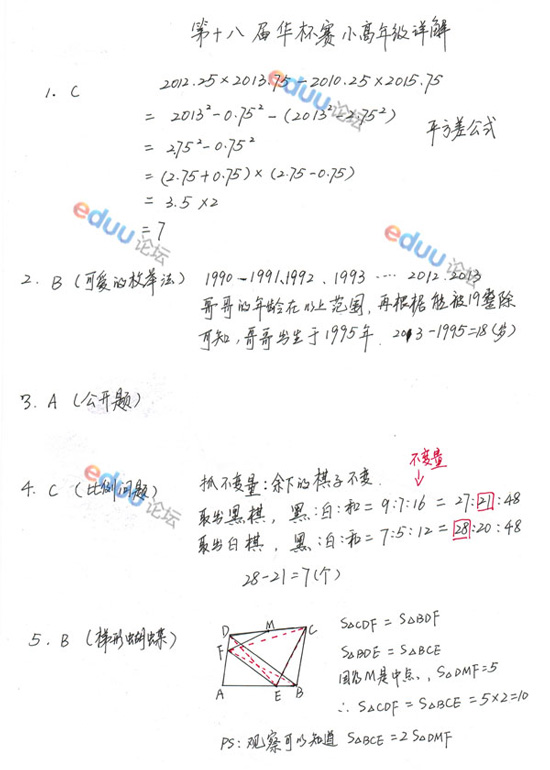 第十八届华杯赛小高年级详解
1. C
2012.25×2013.75-2010.25×2015.75
= 2013²-0.75²-(2013²-2.75²)
= 2.75²-0.75²
平方差公式
= (2.75+0.75)×(2.75-0.75)
= 3.5×2
= 7
2. B (可爱的枚举法) 1990-1991、1992、1993 …… 2012、2013
哥哥的年龄在以上范围,再根据能被19整除
可知,哥哥出生于1995年. 2013-1995=18(岁)
3. A (公开题)
不变量
4. C (比例问题) 抓不变量:余下的棋子不变.
取出黑棋, 黑:白:和=9:7:16 = 27:21:48
取出白棋, 黑:白:和=7:5:12 = 28:20:48
28-21=7(个)
5. B (梯形蝴蝶)
D M C
F
A E B
S△CDF = S△BDF
S△BDE = S△BCE
因为M是中点, S△DMF=5
∴ S△CDF = S△BCE = 5×2=10
PS: 观察可以知道 S△BCE = 2S△DMF
eduu论坛
eduu论坛
eduu论坛
eduu论坛